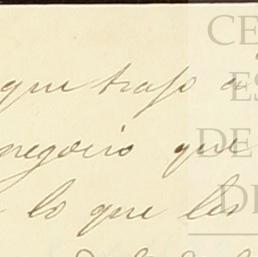 que trajo a
negocio que
lo que les
CE
ES
DE
DE